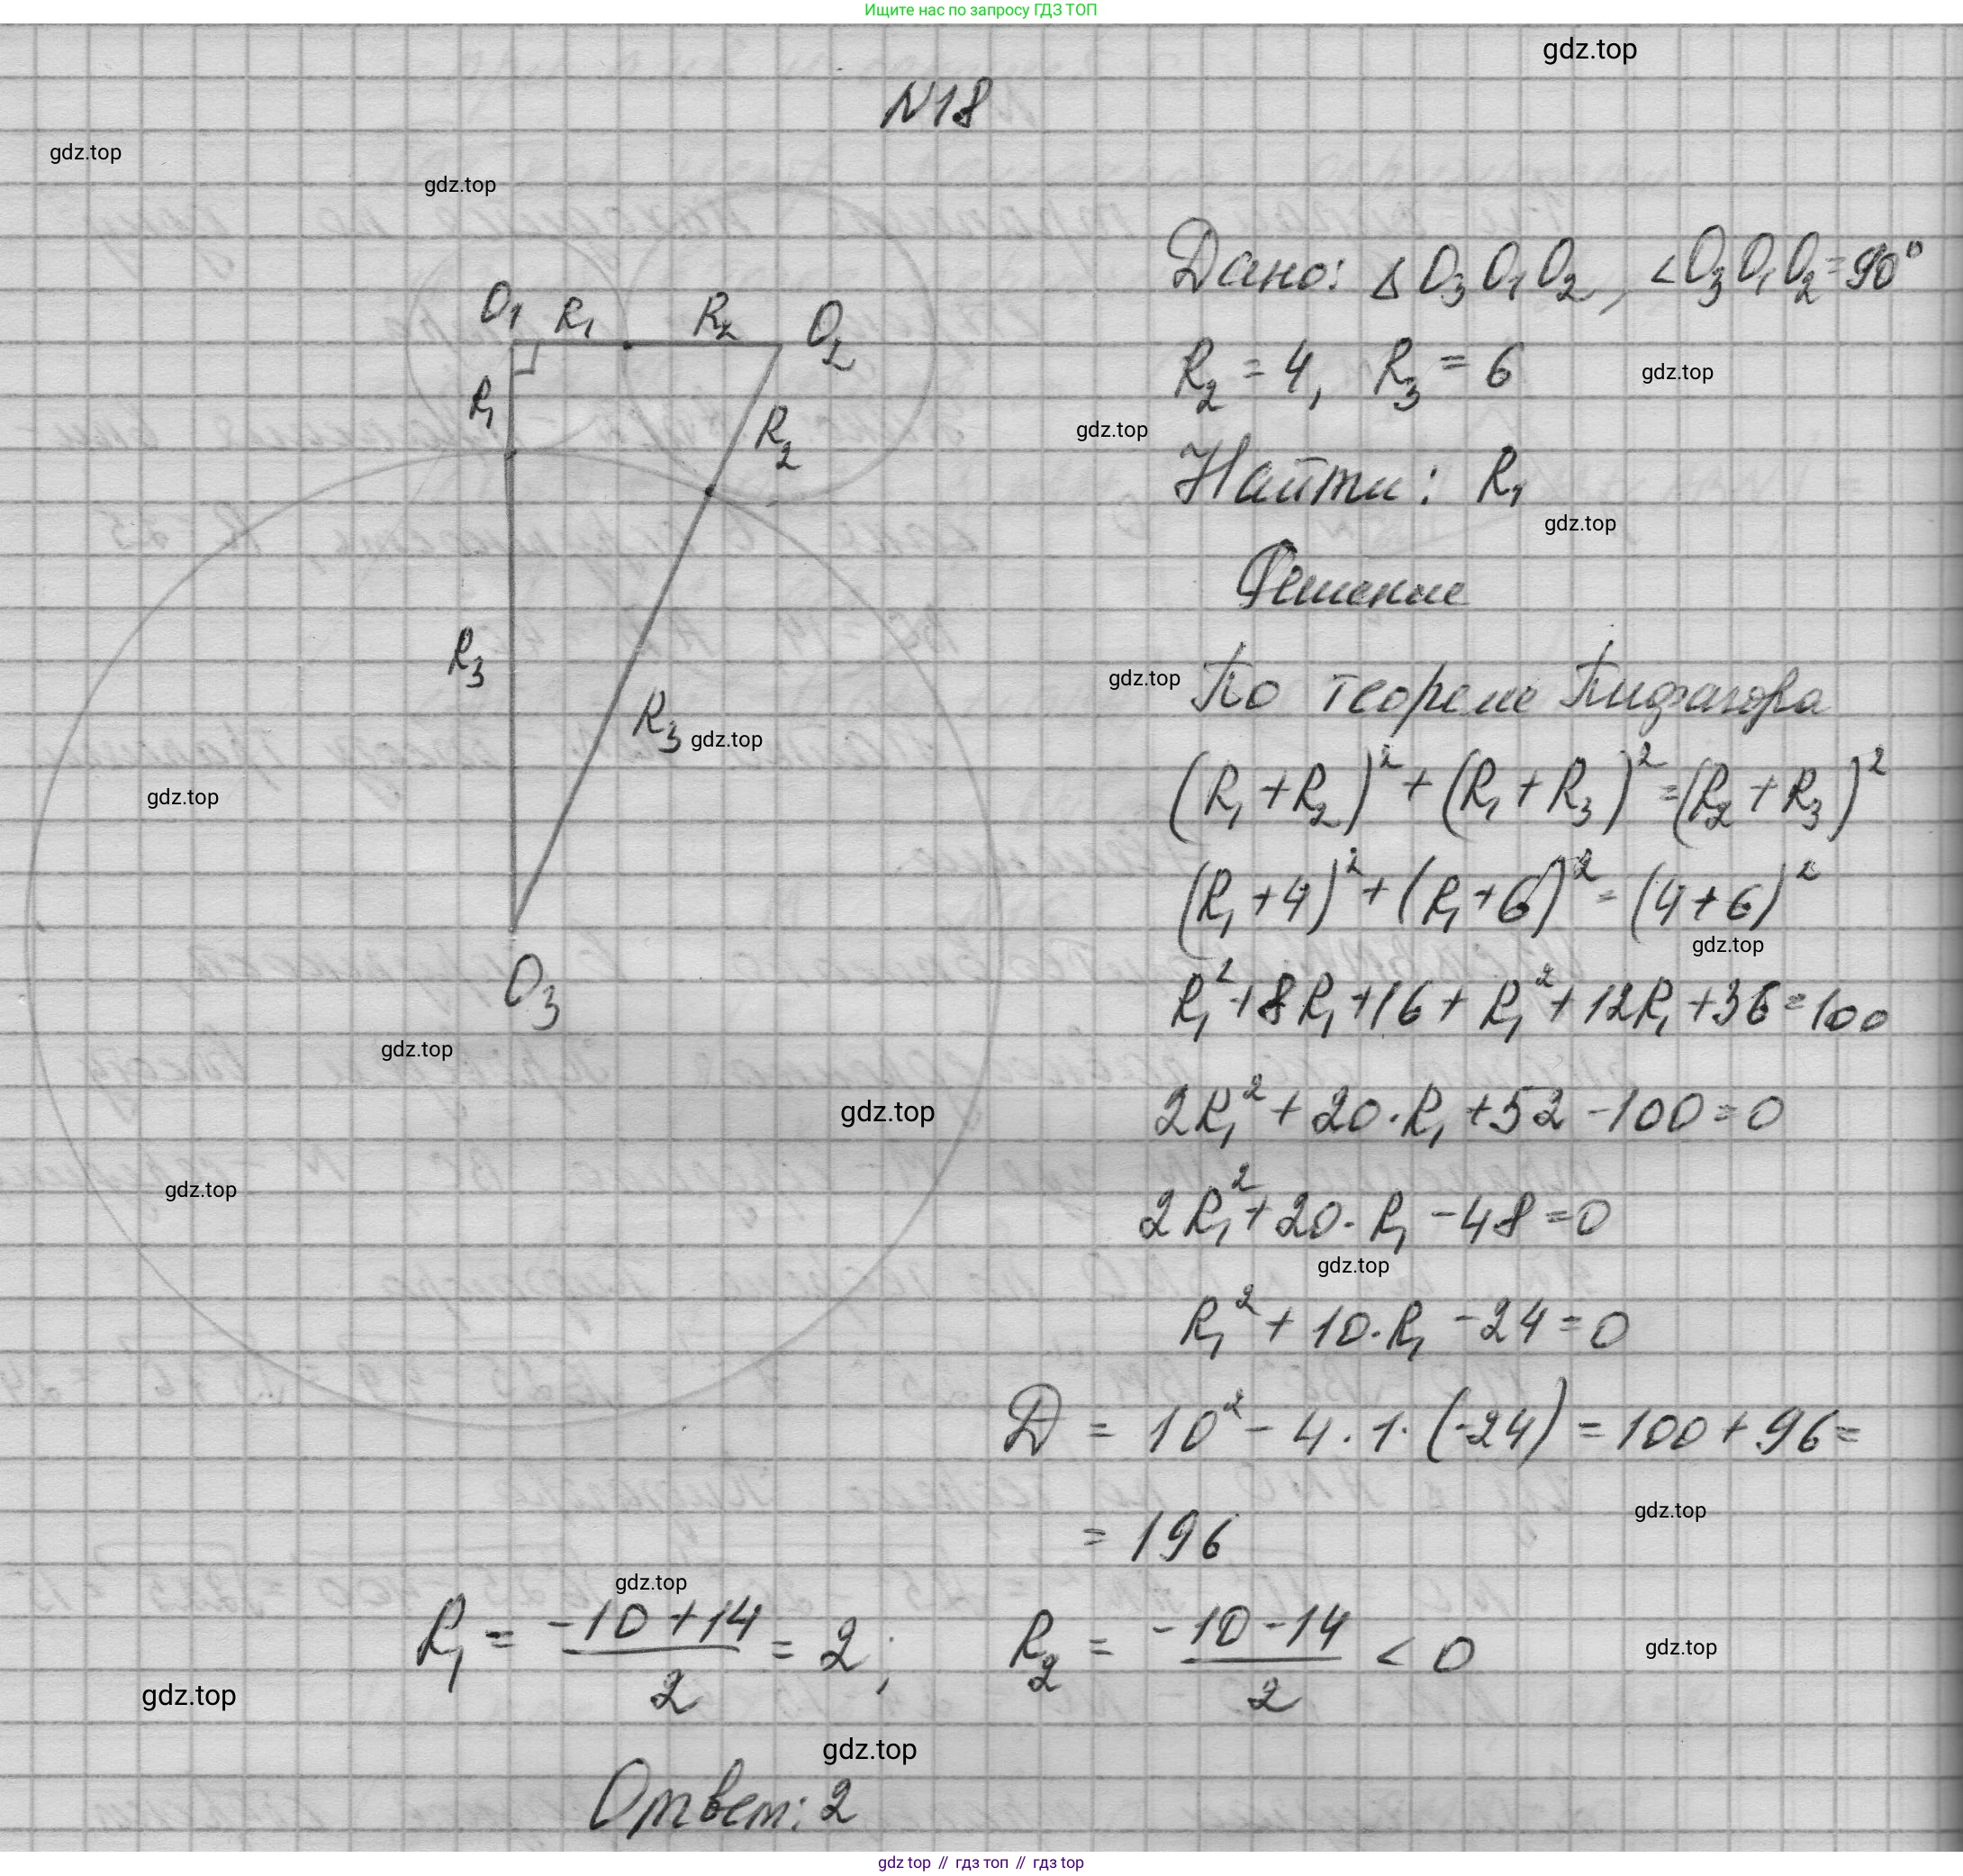 Ищите нас по запросу ГДЗ ТОП
gdz.top
N18
gdz.top
gdz.top
Дано: Δ O₃O₁O₂, ∠O₃O₁O₂=90°
O₁ R₁ R₂ O₂
R₂ = 4, R₃ = 6
gdz.top
R₁
R₂
gdz.top
Найти: R₁
gdz.top
Решение
R₃
gdz.top
По теореме Пифагора
R₃
gdz.top
gdz.top
(R₁+R₂)²+(R₁+R₃)²=(R₂+R₃)²
(R₁+4)²+(R₁+6)²=(4+6)²
gdz.top
O₃
R₁²+8R₁+16+R₁²+12R₁+36=100
gdz.top
gdz.top
2R₁²+20·R₁+52-100=0
gdz.top
2R₁²+20·R₁-48=0
gdz.top
R₁²+10·R₁-24=0
D = 10²-4·1·(-24)=100+96=
gdz.top
= 196
gdz.top
R₁ = (-10+14)/2 = 2; R₂ = (-10-14)/2 < 0
gdz.top
gdz.top
gdz.top
Ответ: 2
gdz top // гдз топ // гдз top